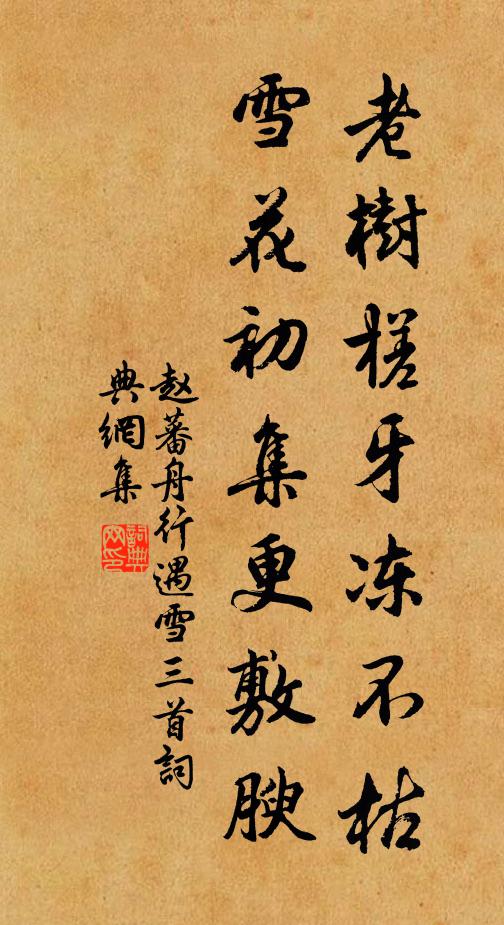 老樹槎牙冻不枯
雪花初集更敷腴
赵蕃舟行遇雪三首詞
典網集
詞典
网印